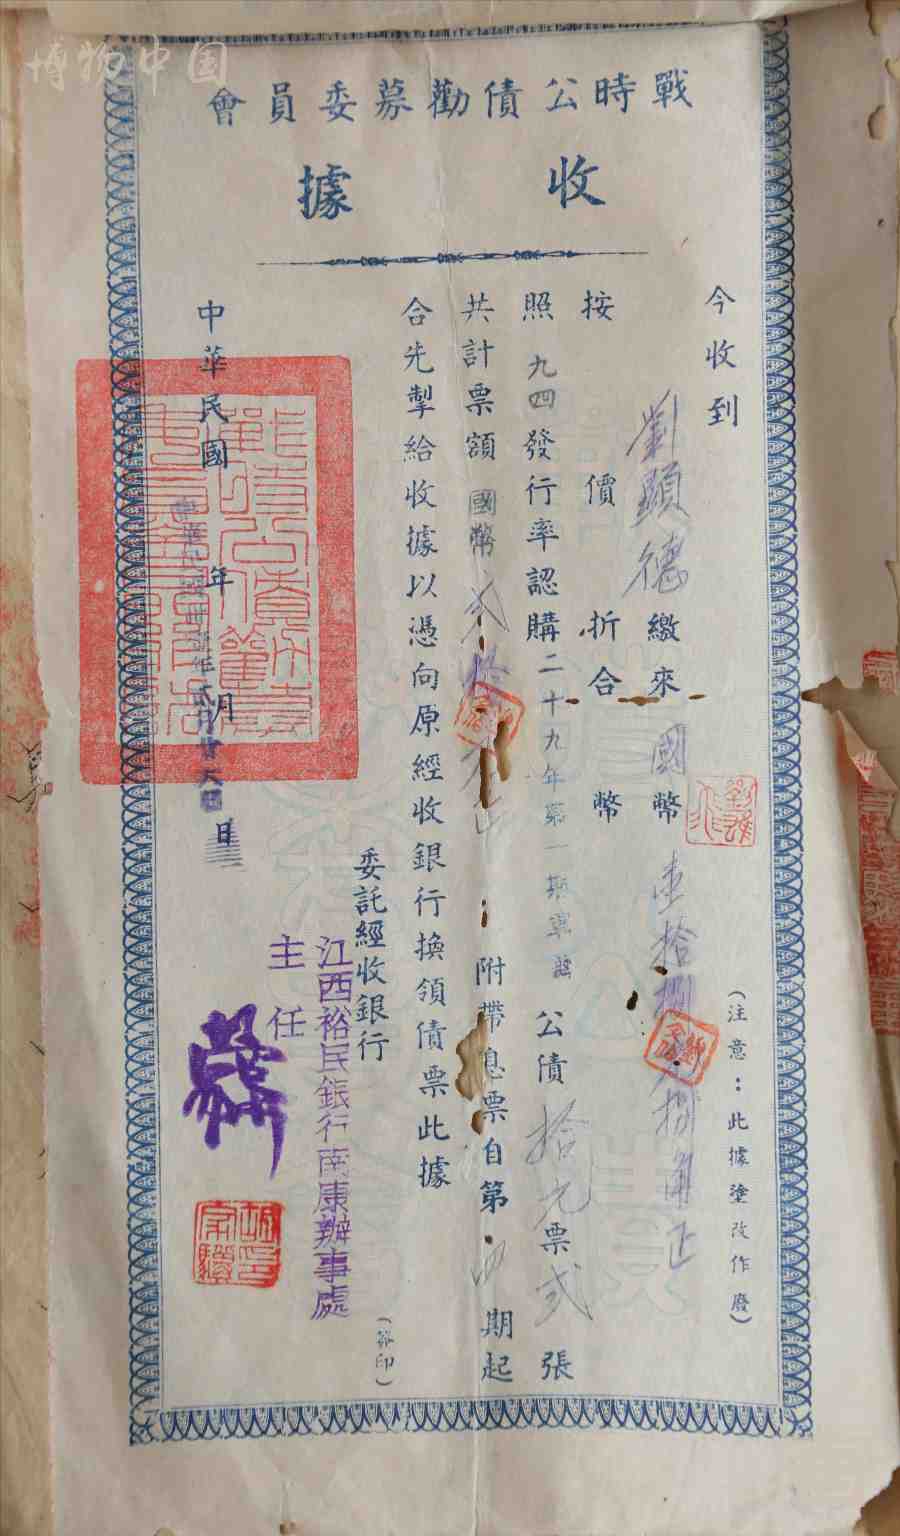 博物中国
戰時公債勸募委員會
收據
(注意:此據塗改作廢)
今收到劉顯德繳來國幣壹拾捌元捌角正
按價折合幣
照九四發行率認購二十九年第一期軍需公債拾元票弍張
共計票額國幣弍拾元正附帶息票自第四期起
合先掣給收據以憑向原經收銀行換領債票此據
委託經收銀行
(簽印)
江西裕民銀行南康辦事處
主任
中華民國年月日